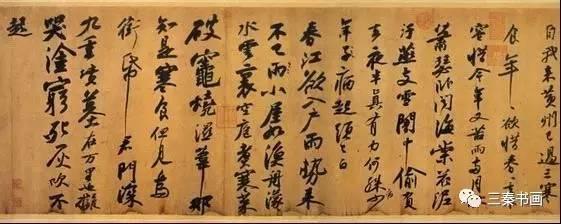 自我来黄州已過三寒
食年〻欲惜春〻去不
容惜今年又苦雨兩月秋
蕭瑟卧聞海棠花泥
汙燕支雪闇中偷負
去夜半真有力何殊病少
年子病起頭已白
春江欲入户雨勢来
不已雨小屋如漁舟濛〻
水雲裏空庖煮寒菜
破竈燒濕葦那
知是寒食但見烏
銜帋君門深
九重墳墓在万里也擬
哭塗窮死灰吹不
起
三秦书画